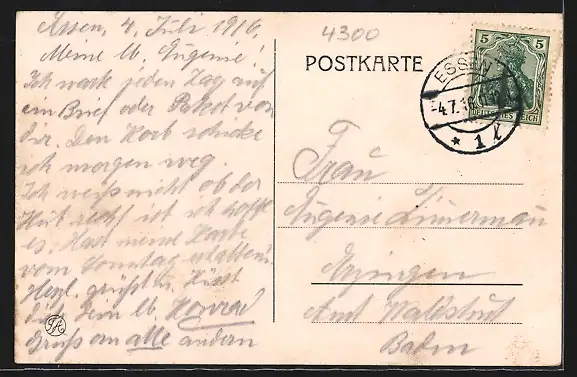 Essen, 4. Juli 1916.
Meine lb. Eugenie!
Ich wart jeden Tag auf
ein Brief oder Paket von
Dir. Den Korb schicke
ich morgen weg.
Ich weiss nicht ob der
Hut recht ist ich hoffe
es. Hast meine Karte
vom Sonntag erhalten.
Herzl. grüsst u. Küsst
Dich Dein lb. Konrad
Gruss an alle andern
4300
POSTKARTE
5 5
DEUTSCHES REICH
ESSEN
4.7.16
* 1 l
Frau
Eugenie Zimmerman
Erzingen
Amt Waldshut
Baden